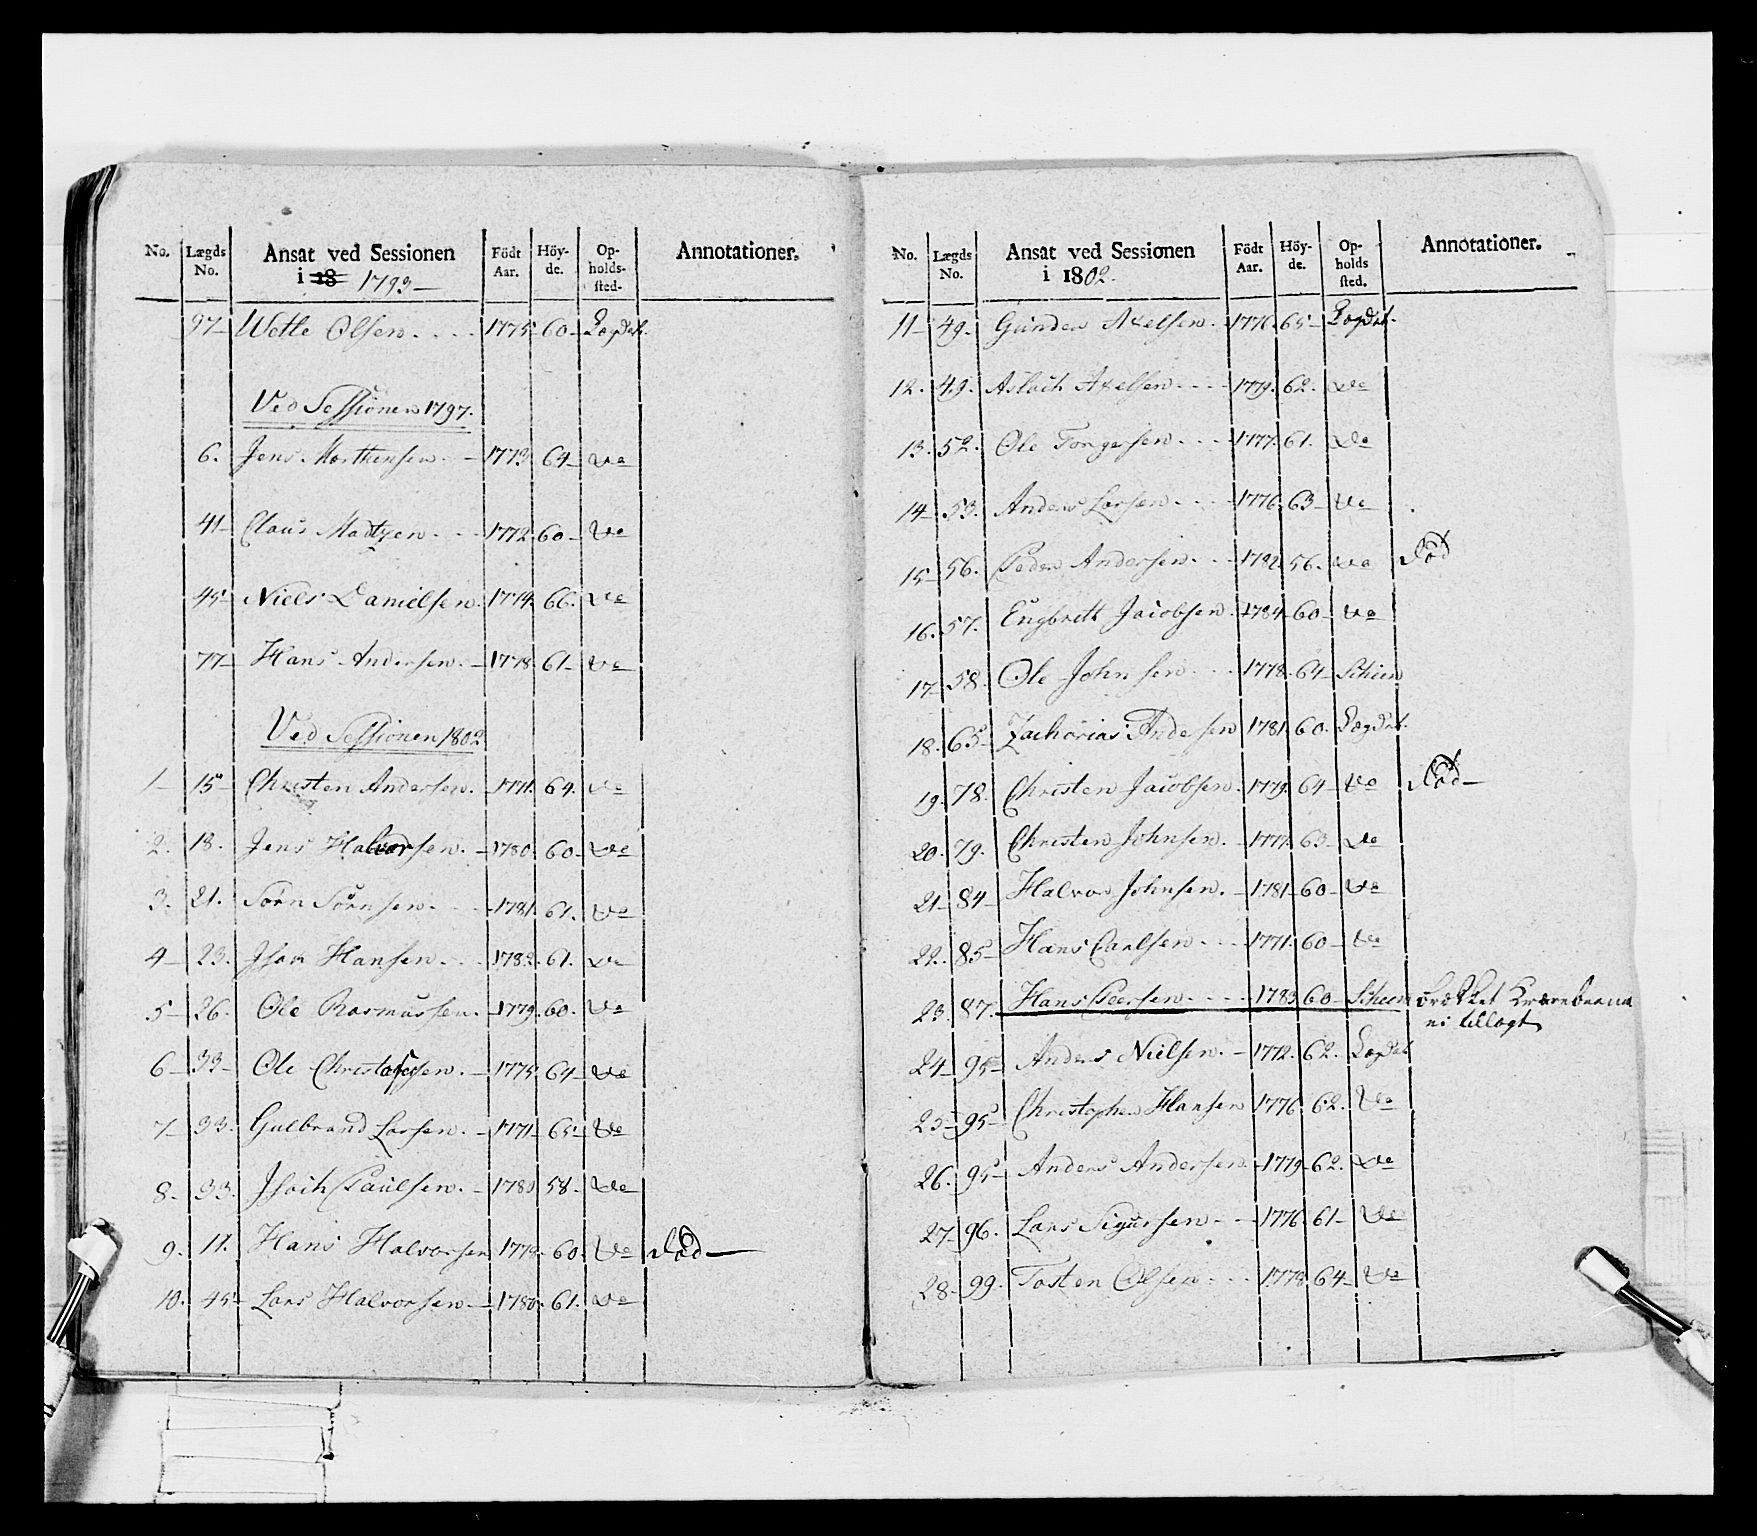 No. Lægds No. Ansat ved Sessionen i 18 1793 Födt Aar. Höyde. Opholdssted. Annotationer.
97 Wetle Olsen 1775 60 Lægdet.
Ved Sessionen 1797.
6. Jens Morthensen 1773 64 do
41 Claus Madtzen 1772 60 do
45 Niels Danielsen 1774 66. do
77 Hans Andersen 1778 61 do
Ved Sessionen 1802
1 15 Christen Andersen 1771. 64. do
2. 18. Jens Halvorsen 1780. 60 do
3. 21. Sörn Sörnsen 1781. 61. do
4 23. Isak Hansen 1782. 61. do
5 26. Ole Rasmussen 1779. 60. do
6 33 Ole Christofersen 1775 64 do
7 33. Gulbrand Larsen 1771 65. do
8. 33. Isach Paulsen 1780 58 do
9. 11. Hans Halvorsen 60. do Död
10. 45 Lars Halvorsen 1780. 61. do
No. Lægds No. Ansat ved Sessionen i 1802. Födt Aar. Höyde. Opholdssted. Annotationer.
11 49. Gunder Axelsen 1776. 65 Lægdet.
12. 49. Aslach Axelsen 1779. 62. do
13. 52. Ole Torgersen 1777. 61. do
14 53. Anders Larsen 1776. 63 do
15 56. Peder Andersen 1782 56. do Död
16. 57. Engbrett Jacobsen 1784 60 do
17 58. Ole Johnsen 1778. 64 Scheen
18. 65 Zacharias Andersen 1781. 60. Lægdet.
19. 78. Christen Jacobsen 1779. 64 do Död
20. 79. Christen Johnsen 1777. 63 do
21 84 Halvor Johnsen 1781 60 do
22. 85 Hans Carlsen 1771. 60 do
23. 87. Hans Peersen 1783 60 Scheen brækket
ei tillagt
24 95 Anders Nielsen 1772. 62. Lægdet
25 95 Christopher Hansen 1776 62. do
26. 95 Anders Andersen 1779. 62. do
27 96. Lars Sigursen 1776. 61 do
28 99. Tosten Olsen 1778 64 do